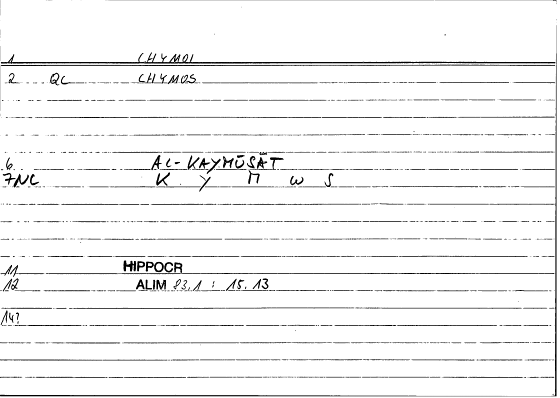 1 CHYMOI
2 QC CHYMOS
6 AL-KAYMŪSĀT
7NC K Y M W S
11 HIPPOCR
12 ALIM 83.1 : 15.13
14?